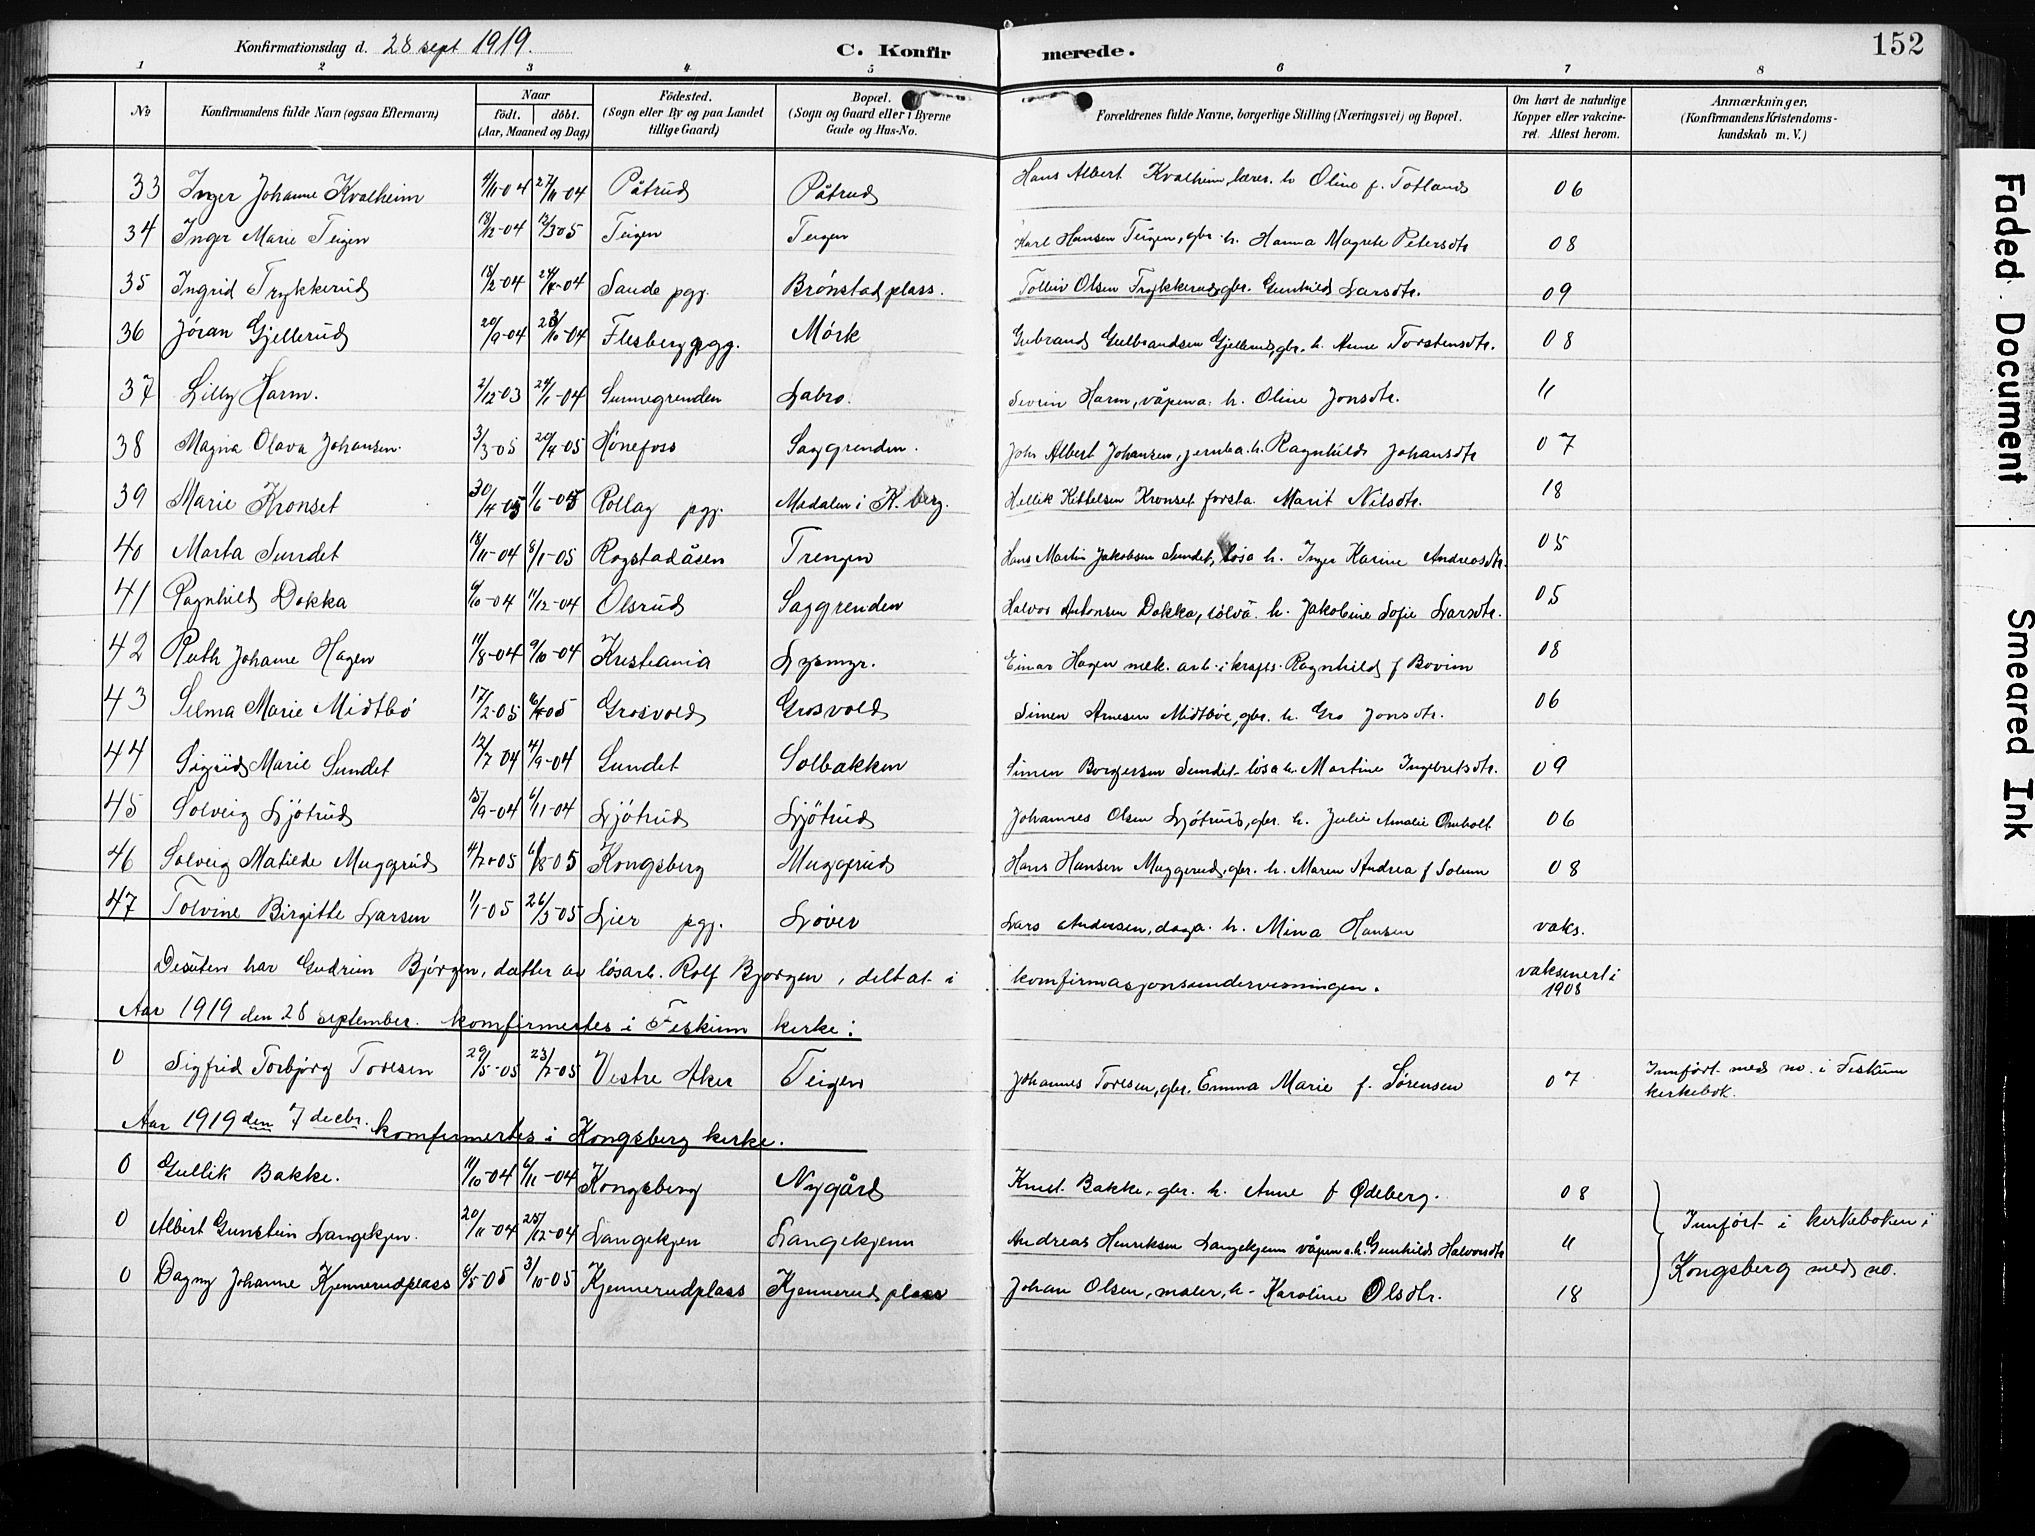 Konfirmationsdag d. 28 sept 1919. C. Konfirmerede. 152
1 2 3 4 5 6 7 8
No Konfirmandens fulde Navn (ogsaa Efternavn) Naar født. døbt. (Aar, Maaned og Dag) Fødested. (Sogn eller By og paa Landet tillige Gaard) Bopæl. (Sogn og Gaard eller i Byerne Gade og Hus-No. Forældrenes fulde Navne, borgerlige Stilling (Næringsvei) og Bopæl. Om havt de naturlige Kopper eller vakcineret. Attest herom. Anmærkninger, (Konfirmandens Kristendomskundskab m. V.)
33 Inger Johanne Kvalheim 4/11-04 27/11-04 Påtrud Påtrud Hans Albert Kvalheim, lærer. h Oline f. Totland 06
34 Inger Marie Teigen 13/12-04 12/3 05 Teigen Teigen Karl Hansen Teigen, gbr. h. Hanna Magrete Petersdtr 08
35 Ingrid Trykkerud 18/2-04 24/4-04 Sande pgj. Brønstad plass. Tollev Olsen Trykkerud, gbr. Gunhild Larsdtr. 09
36 Jøran Gjellerud 20/9-04 23/10-04 Flesberg pgj. Mørk Gubrand Gulbrandsen Gjellerud, gbr. h. Anne Torstensdtr. 08
37 Lilly Harm. 2/12-03 24/1-04 Summegrenden Labro. Sevrin Harm, våpena. h. Oline Jonsdtr. 11
38 Magna Olava Johansen. 3/3-05 20/4-05 Hønefoss Saggrenden. John Albert Johansen, jernba. h. Ragnhild Johansdtr 07
39 Marie Kronset 30/4-05 11/6-05 Rollag pgj. Madalen i K.berg. Hellik Kittelsen Kronset forsta. Marit Nilsdtr. 18
40 Marta Sundet 18/11-04 8/1-05 Rogstadåsen Trengen Hans Martin Jakobsen Sundet, løsa h. Inger Karine Andreasdtr. 05
41 Ragnhild Dokka 9/10-04 11/12-04 Olsrud Saggrenden Halvor Antonsen Dokka, sølva. h. Jakobine Sofie Larsdtr. 05
42 Ruth Johanne Hagen 11/8-04 9/10-04 Kristiania Lysmyr. Einar Hagen mek. arb. i krafts. Ragnhild f Bovim 08
43 Selma Marie Midtbø 17/2-05 16/4-05 Grosvold Grosvold Simen Arnesen Midtbøe, gbr. h. Gro Jonsdtr. 06
44 Sigrid Marie Sundet 12/7 04 4/9-04 Sundet Solbakken Simen Borgersen Sundet løsa h. Martine Ingebretsdtr. 09
45 Solveig Ljøtrud 15/9-04 6/11-04 Ljøtrud Ljøtrud Johannes Olsen Ljøtrud, gbr. h. Julie Amalie Omholt 06
46 Solveig Matilde Muggerud 4/2-05 6/8-05 Kongsberg Muggerud Hans Hansen Muggerud, gbr. h. Maren Andrea f Solum 08
47 Tolvine Birgitte Larsen 11/1-05 26/3-05 Lier pgj. Løver Lars Andersen, daga. h. Mina Hansen vaks.
Desuten har Gudrun Bjørgen, datter av løsarb. Rolf Bjørgen, deltat i konfirmasjonsundervisningen. vaksinert i 1908
Aar 1919 den 28 september. konfirmertes i Fiskum kirke:
0 Sigfrid Torbjørg Toresen 29/5-05 23/7-05 Vestre Aker Teigen Johannes Toresen, gbr. Emma Marie f. Sørensen 07 Innført med no. i Fiskum kirkebok.
Aar 1919 den 7 decbr. konfirmertes i Kongsberg kirke.
0 Gullik Bakke. 11/10-04 6/11-04 Kongsberg Nygård Knut Bakke, gbr. h. Anne f Ødeberg. 08
0 Albert Gunstein Langekjen. 20/11-04 25/12-04 Langekjen Langekjenn Andreas Henriksen Langekjenn våpena. h. Gunhild Halvorsdtr 11 Innført i kirkeboken i
0 Dagny Johanne Kjennerudplass 8/5-05 3/10-05 Kjennerudplass Kjennerudplass Johan Olsen, maler, h. Karoline Olsdtr. 18 Kongsberg med no.
Faded Document Smeared Ink